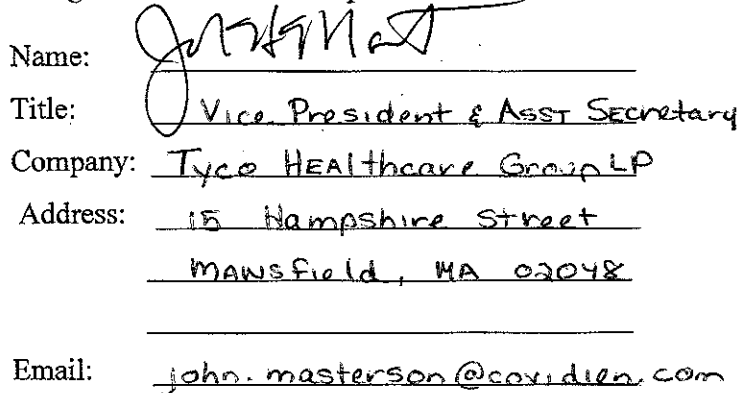 Name:
Title: Vice President & Asst Secretary
Company: Tyco HEAlthcare Group LP
Address: 15 Hampshire Street
MANSfield, MA 02048
Email: john.masterson@covidien.com